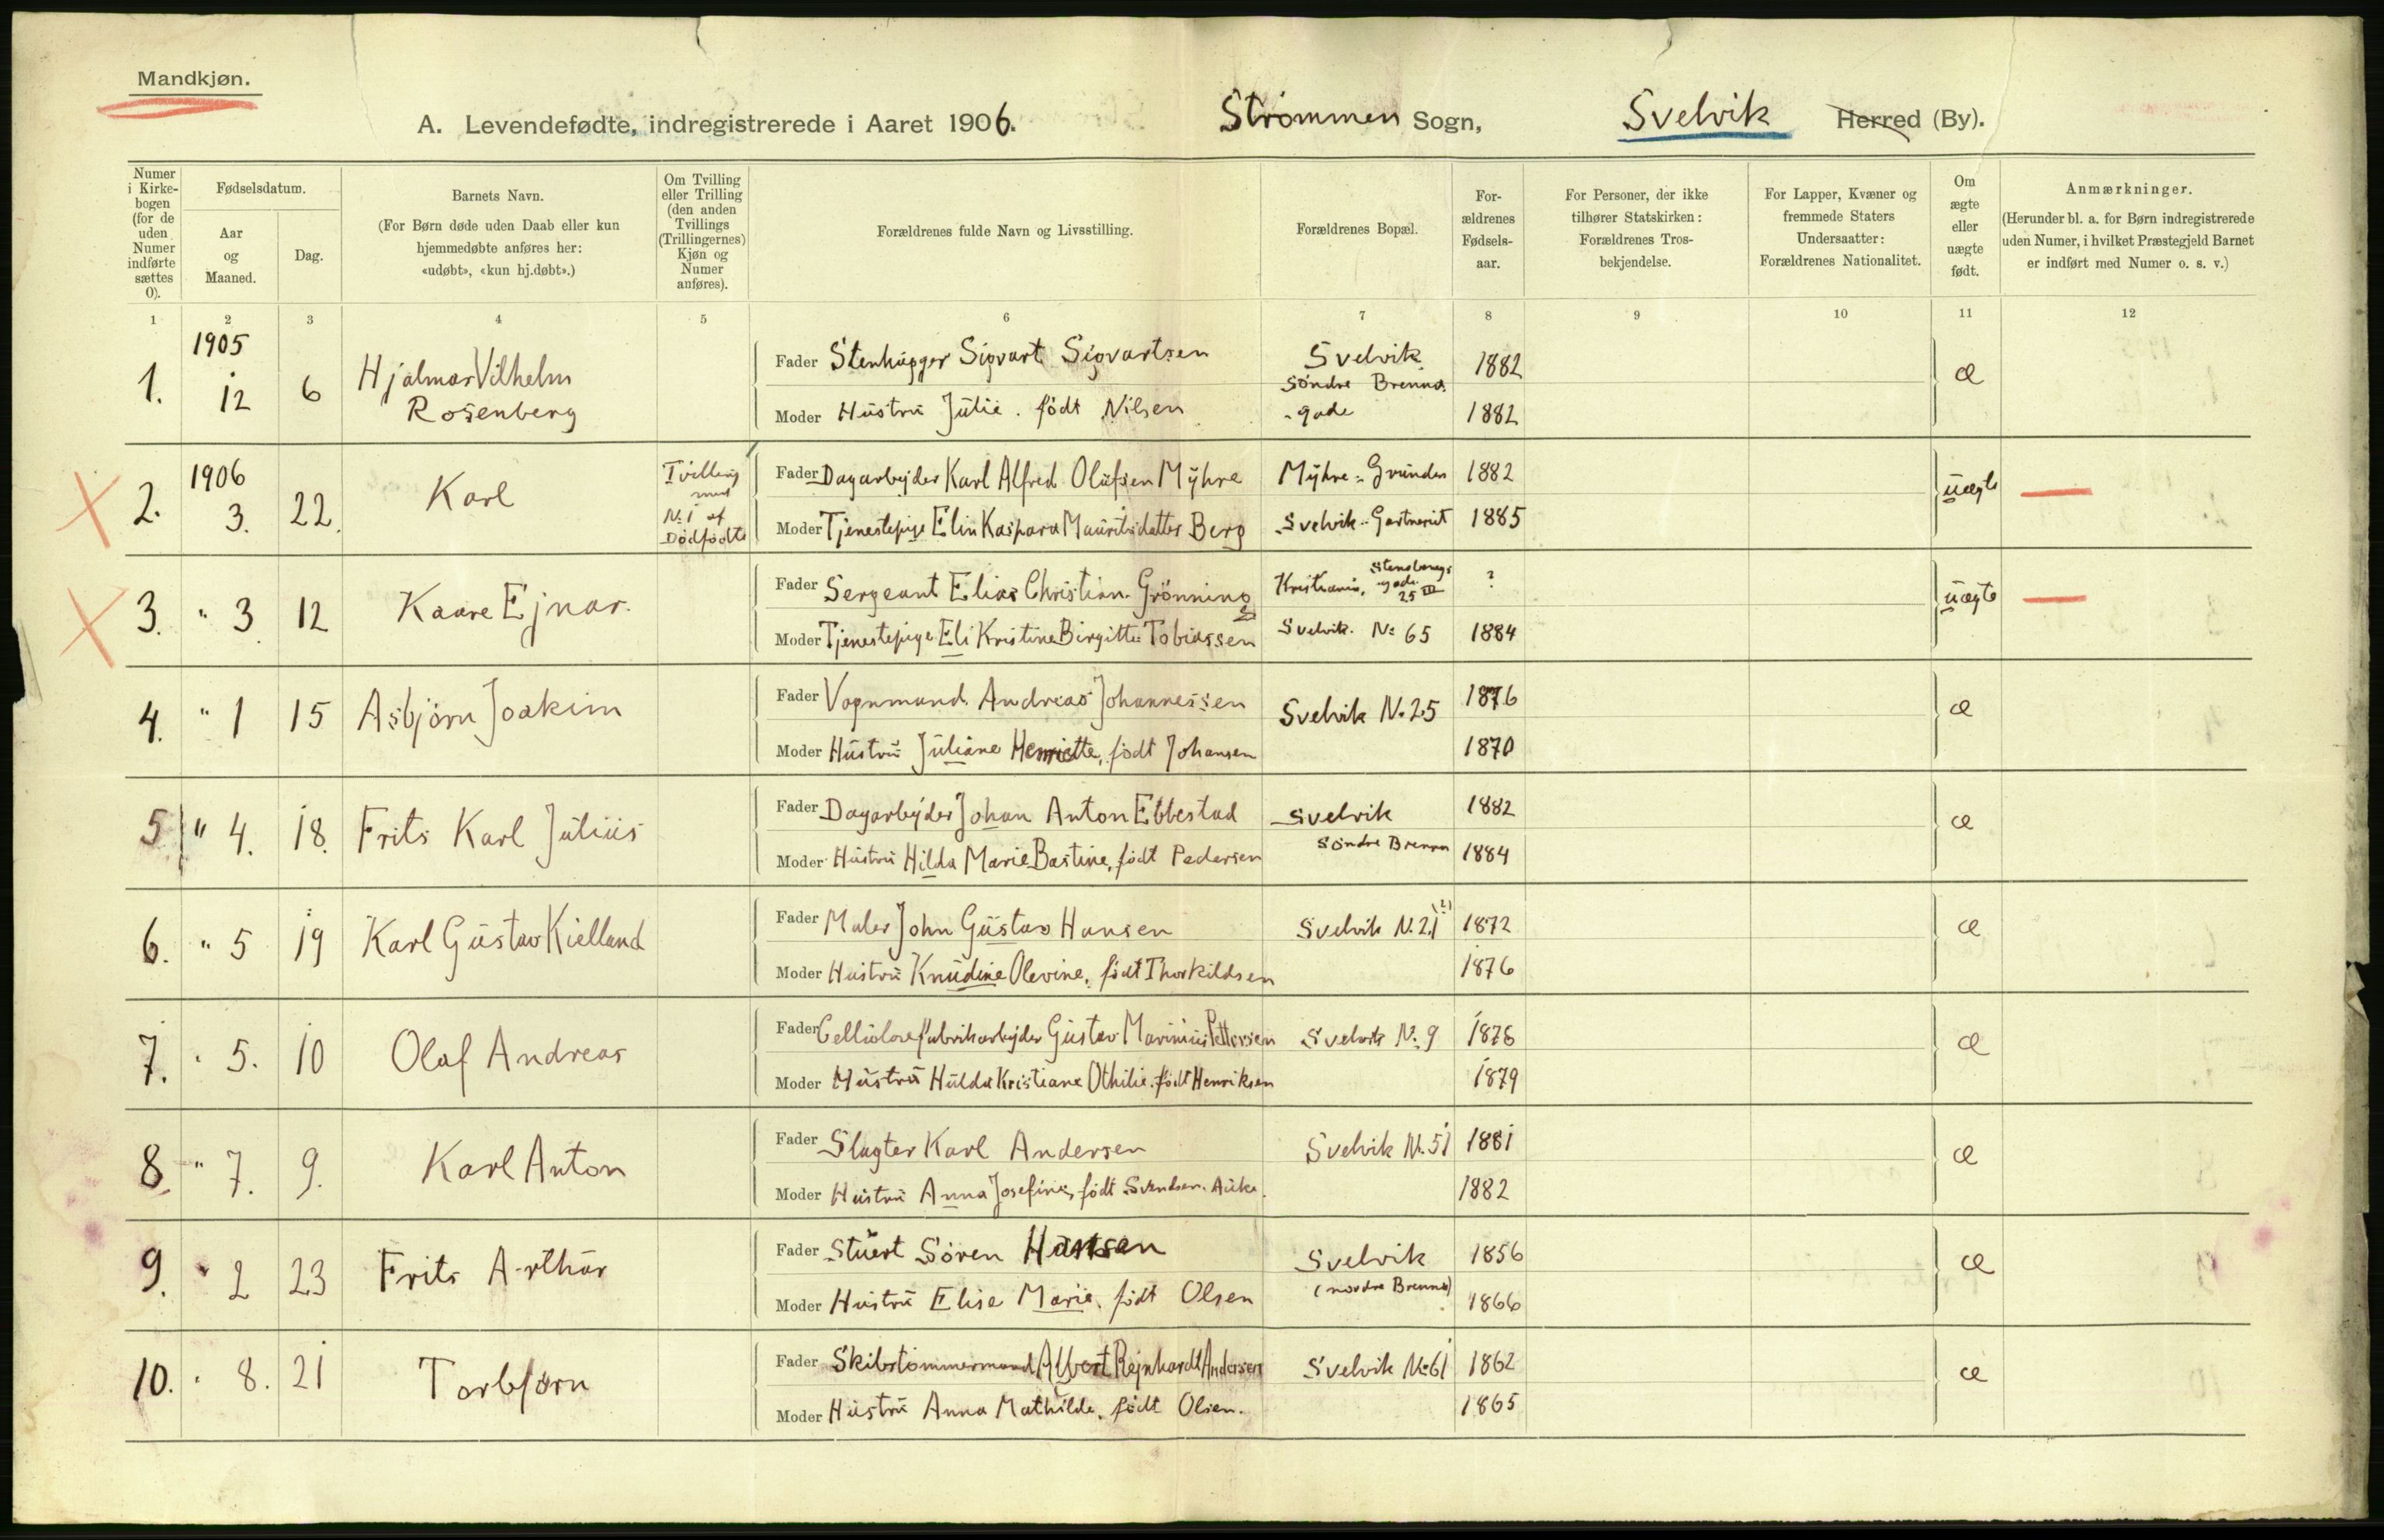 Mandkjøn.
A. Levendefødte, indregistrerede i Aaret 1906. Strømmen Sogn, Svelvik Herred (By).
Numer i Kirkebogen (for de uden Numer indførte sættes 0).
Fødselsdatum.
Aar og Maaned.
Dag.
Barnets Navn.
(For Børn døde uden Daab eller kun hjemmedøbte anføres her: «udøbt», «kun hj.døbt».)
Om Tvilling eller Trilling (den anden Tvillings (Trillingernes) Kjøn og Numer anføres).
Forældrenes fulde Navn og Livsstilling.
Forældrenes Bopæl.
Forældrenes Fødselsaar.
For Personer, der ikke tilhører Statskirken: Forældrenes Trosbekjendelse.
For Lapper, Kvæner og fremmede Staters Undersaatter: Forældrenes Nationalitet.
Om ægte eller uægte født.
Anmærkninger.
(Herunder bl. a. for Børn indregistrerede uden Numer, i hvilket Præstegjeld Barnet er indført med Numer o. s. v.)
1 2 3 4 5 6 7 8 9 10 11 12
1. 1905 12 6 Hjalmar Vilhelm Rosenberg
Fader Stenhugger Sigvart Sigvartsen Svelvik 1882 æ
Søndre Brenna
Moder Hustru Julie. født Nilsen -gade 1882
2. 1906 3. 22. Karl Tvilling med N. 1 af Dødfødte
Fader Dagarbejder Karl Alfred Olufsen Myhre Myhre - Grunden 1882 uægte
Moder Tjenestepige Elin Kaspara Mauritsdatter Berg Svelvik - Gartneriet 1885
3. " 3 12 Kaare Ejnar.
Fader Sergeant Elias Christian Grønning Kristiania, Stensbergsgade 25 III ? uægte
Moder Tjenestepige Eli Kristine Birgitte Tobiassen Svelvik. No 65 1884
4. " 1 15 Asbjørn Joakim
Fader Vognmand. Andreas Johannessen Svelvik N. 25 1876 æ
Moder Hustru Juliane Henriette, født Johansen 1870
5 " 4. 18. Frits Karl Julius
Fader Dagarbejder Johan Anton Ebbestad Svelvik 1882 æ
Moder Hustru Hilda Marie Bastine, født Pedersen Søndre Brenna 1884
6. " 5 19 Karl Gustav Kielland
Fader Maler John Gustav Hansen Svelvik N. 21 (?) 1872 æ
Moder Hustru Knudine Olevine, født Thorkildsen 1876
7. " 5. 10 Olaf Andreas
Fader Cellulosefabrikarbejder Gustav Marinius Pettersen Svelvik No 9 1876 æ
Moder Hustru Hulda Kristiane Othilie. født Henriksen 1879
8. " 7. 9. Karl Anton
Fader Slagter Karl Andersen Svelvik N. 51 1881 æ
Moder Hustru Anna Josefine, født Svendsen Auke. 1882
9. " 2 23 Frits Arthur
Fader Stuert Søren Hansen Svelvik 1856 æ
(nordre Brenna)
Moder Hustru Elise Marie. født Olsen 1866
10. " 8. 21 Torbjørn
Fader Skibstømmermand Albert Rejnhardt Andersen Svelvik No 61 1862 æ
Moder Hustru Anna Mathilde. født Olsen. 1865